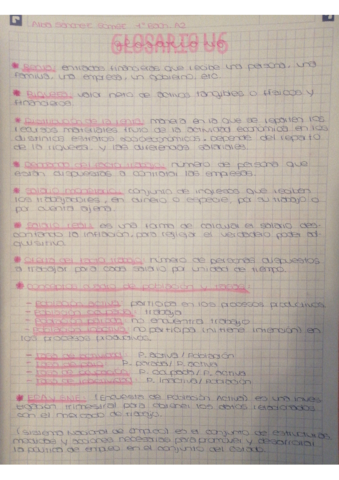 GLOSARIO U6
* Renta: entradas financieras que recibe una persona, una
familia, una empresa, un gobierno, etc.
* Riqueza: valor neto de activos tangibles o físicos y
financieros.
* Distribución de la renta: manera en la que se reparten los
recursos materiales fruto de la actividad económica en los
distintos estratos socioeconómicos, depende del reparto
de la riqueza y las diferencias salariales.
* Demanda del factor trabajo: número de persona que
están dispuestos a contratar las empresas.
* Salario : conjunto de ingresos que reciben
los trabajadores, en dinero o especie, por su trabajo o
por cuenta ajena.
* Salario real: es una forma de calcular el salario des-
contando la inflación, para reflejar el verdadero poder ad-
quisitivo.
* Oferta del factor trabajo: número de personas dispuestos
a trabajar para cada salario por unidad de tiempo.
* Conceptos de población y trabajo
- Población activa: participa en los procesos productivos
- Población : trabaja
- Población : no encuentra trabajo
- Población : no participa (ni tiene intención) en
los procesos productivos.
- Tasa de actividad: P. activa / Población
- Tasa de : P. parada / P. activa
- Tasa de : P. ocupada / P. activa
- Tasa de : P. inactiva / Población
* EPA y SNE: (Encuesta de Población Activa) es una inves-
tigación trimestral para obtener los datos relacionados
con el mercado de trabajo.
(Sistema Nacional de Empleo) es el conjunto de estructuras,
medidas y acciones necesarias para promover y desarrollar
la política de empleo en el conjunto del estado.